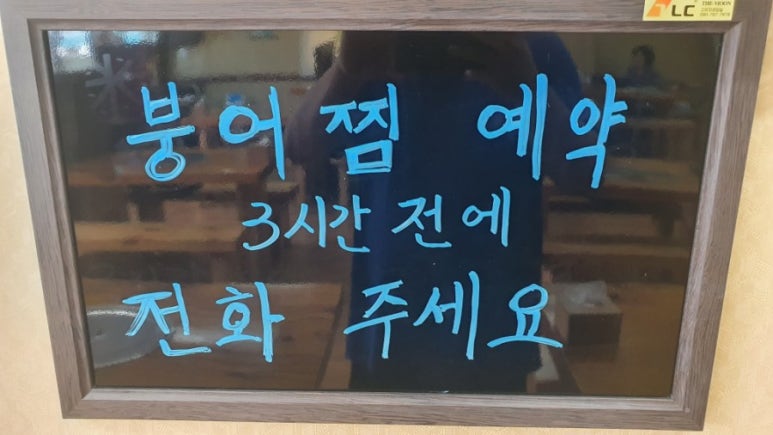 붕어찜 예약
3시간 전에
전화 주세요
LC